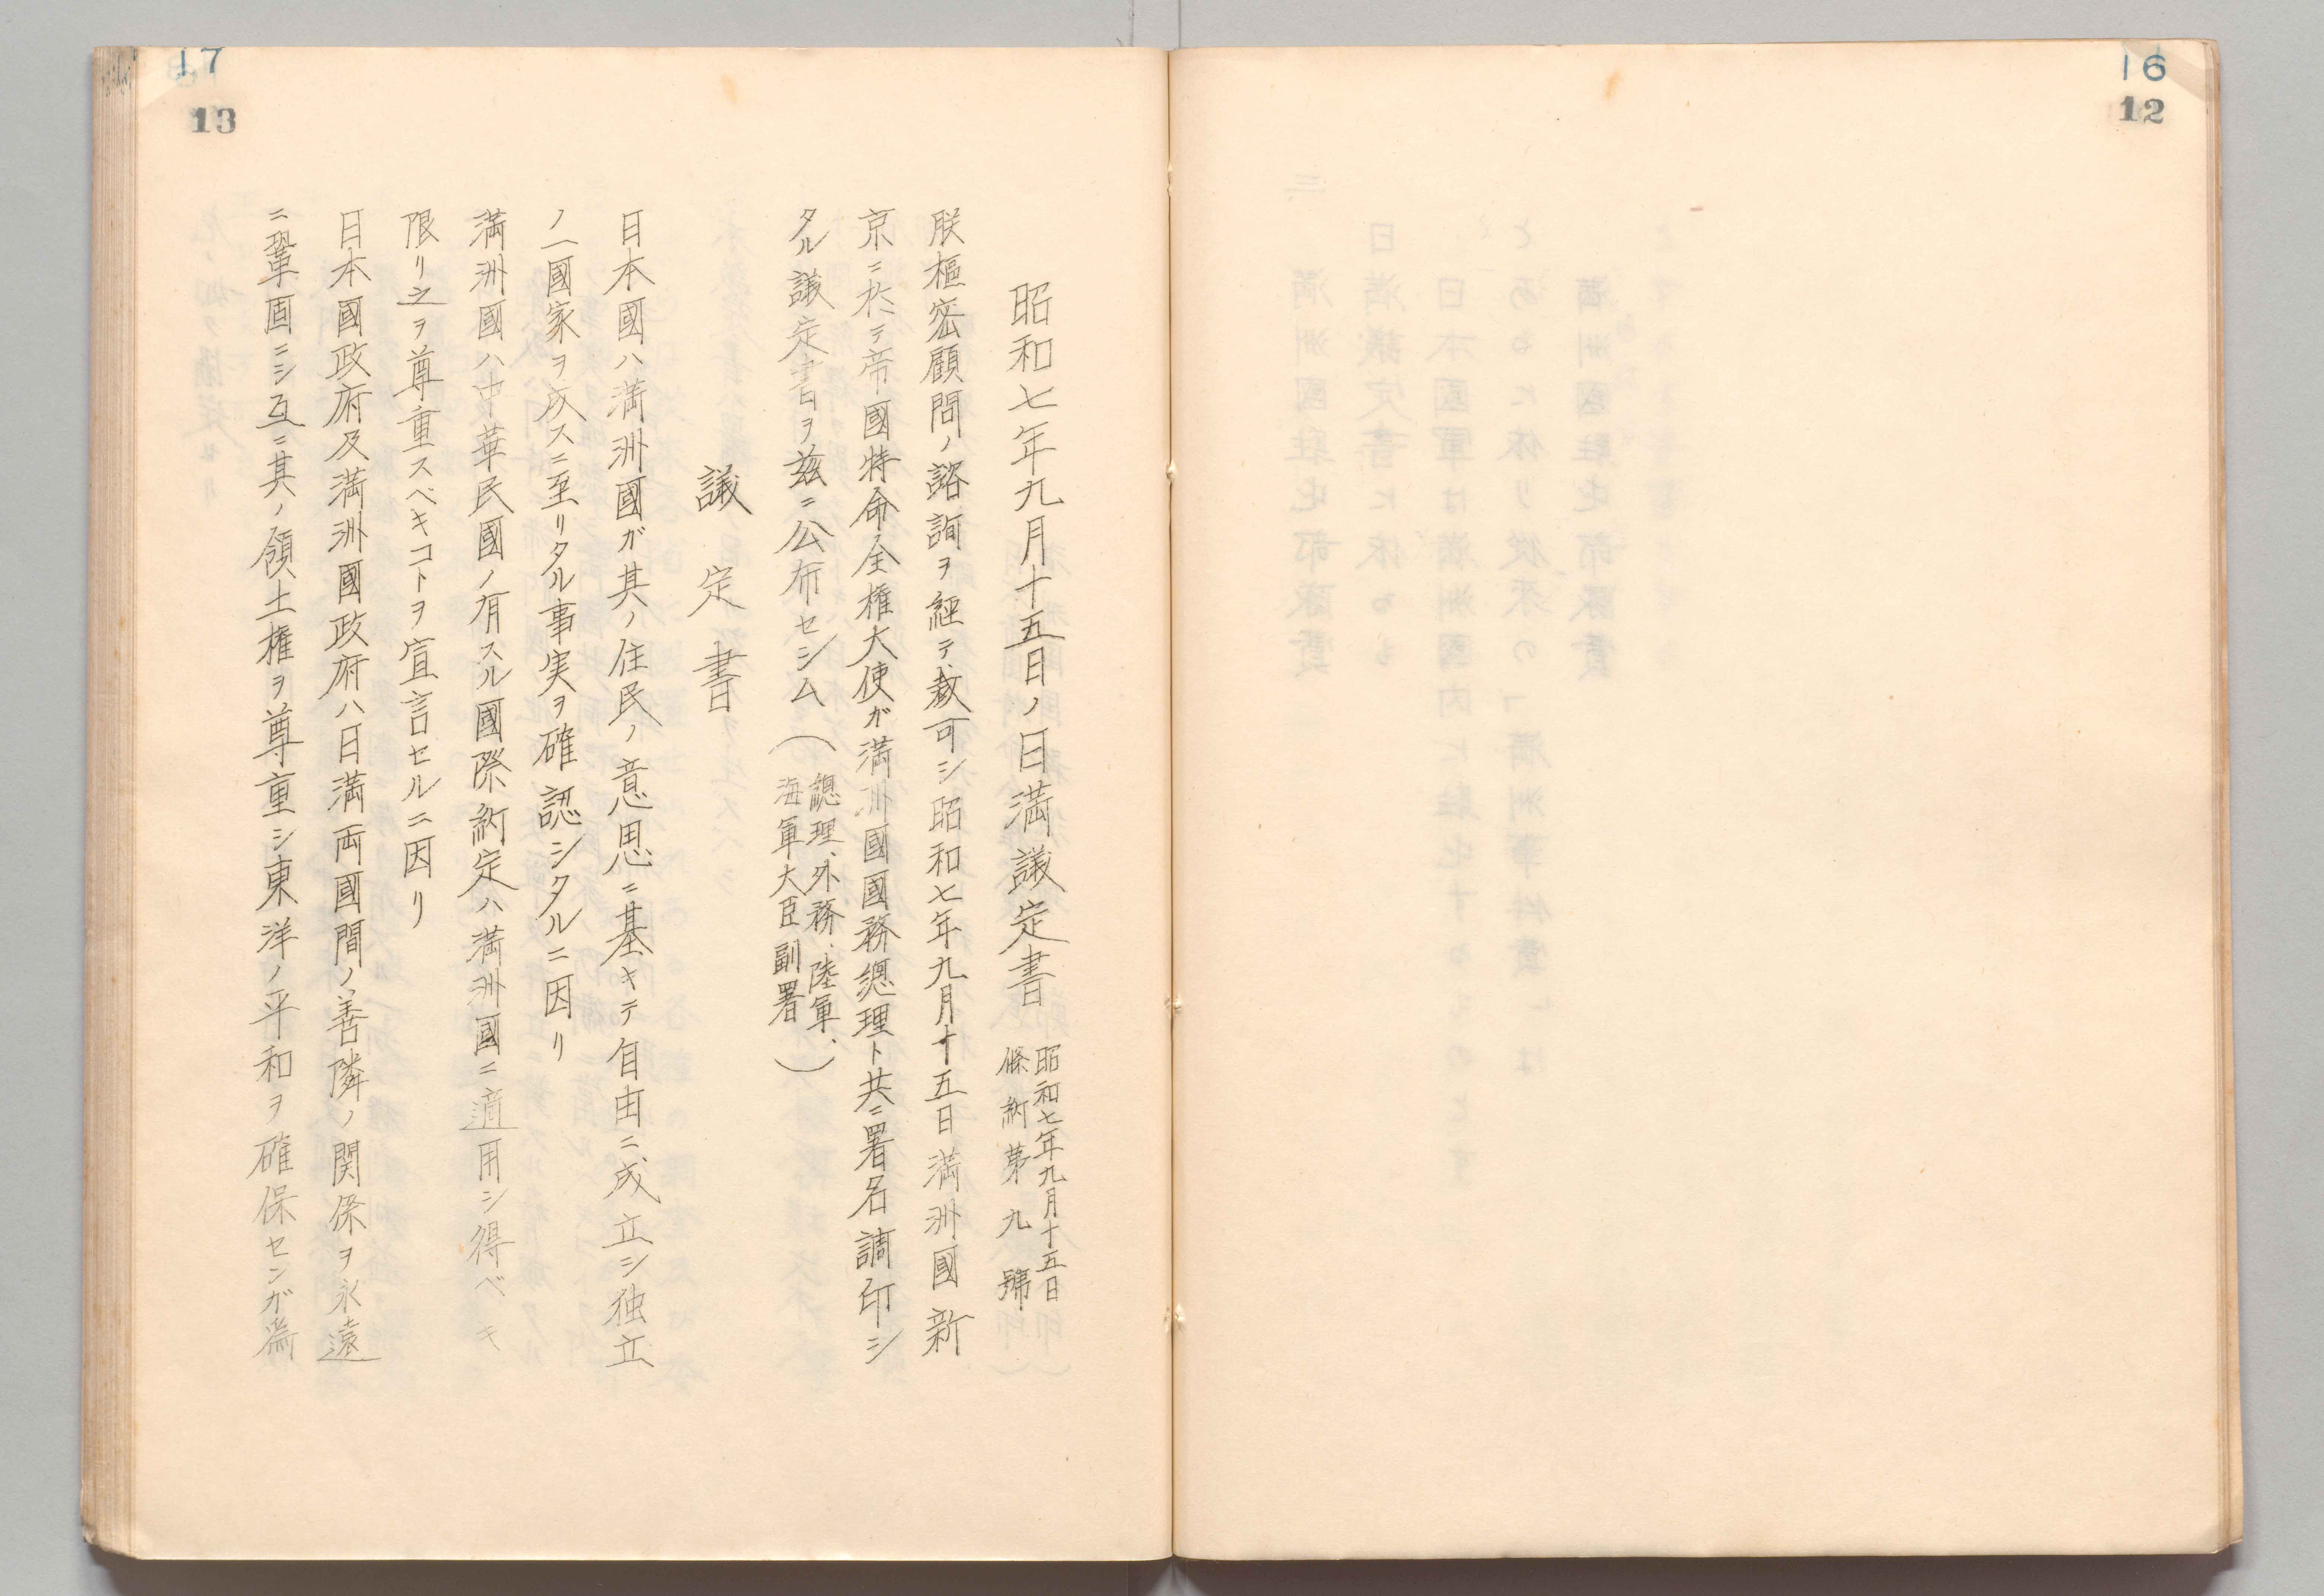 16
12
17
13
昭和七年九月十五日ノ日満議定書
昭和七年九月十五日
條約第九號
朕枢密顧問ノ諮詢ヲ経テ裁可シ昭和七年九月十五日満洲國新
京ニ於テ帝國特命全権大使ガ満洲國國務總理ト共ニ署名調印シ
タル議定書ヲ茲ニ公布セシム(
總理、外務、陸軍、
海軍大臣副署
)
議定書
日本國ハ満洲國ガ其ノ住民ノ意思ニ基キテ自由ニ成立シ独立
ノ一國家ヲ成スニ至リタル事実ヲ確認シタルニ因リ
満洲國ハ中華民國ノ有スル國際約定ハ満洲國ニ適用シ得ベキ
限リ之ヲ尊重スベキコトヲ宣言セルニ因リ
日本國政府及満洲國政府ハ日満両國間ノ善隣ノ関係ヲ永遠
ニ鞏固ニシ互ニ其ノ領土権ヲ尊重シ東洋ノ平和ヲ確保センガ為